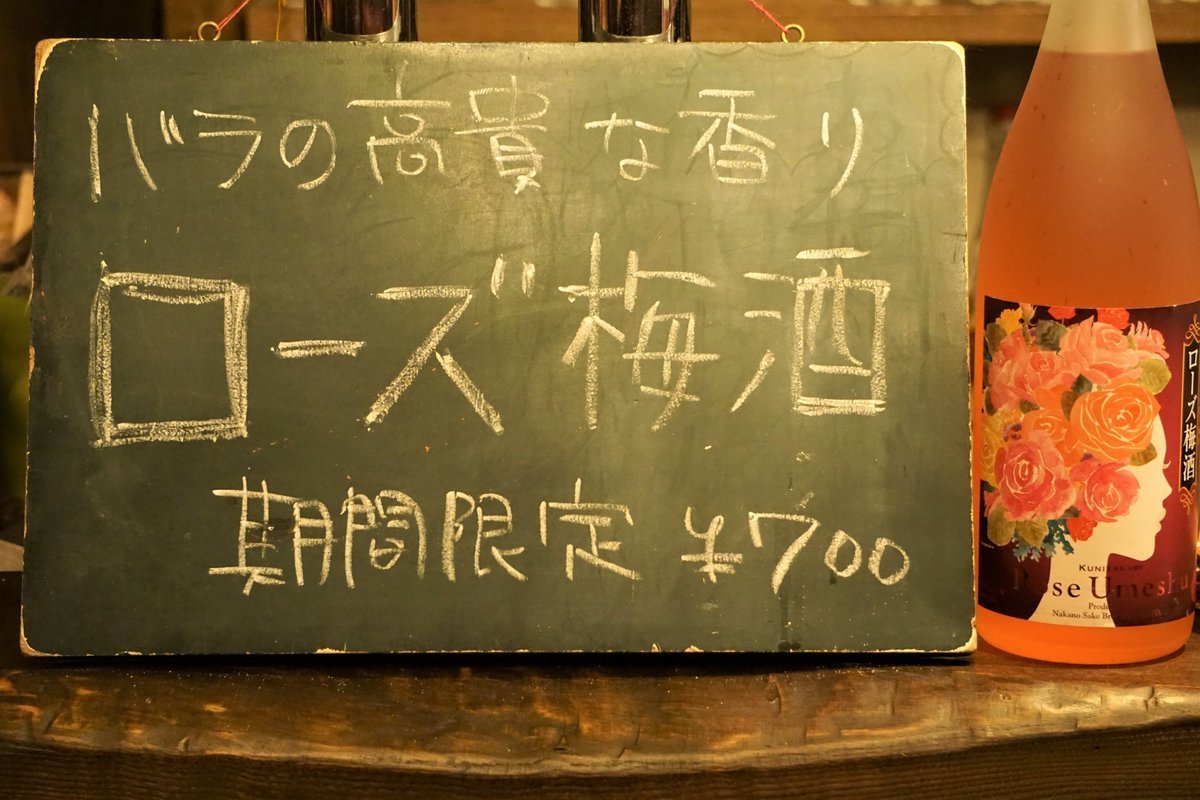 バラの高貴な香り
ローズ梅酒
期間限定 ¥700
ローズ梅酒
KUNIZAKARI
Rose Umeshu
Nakano Sake